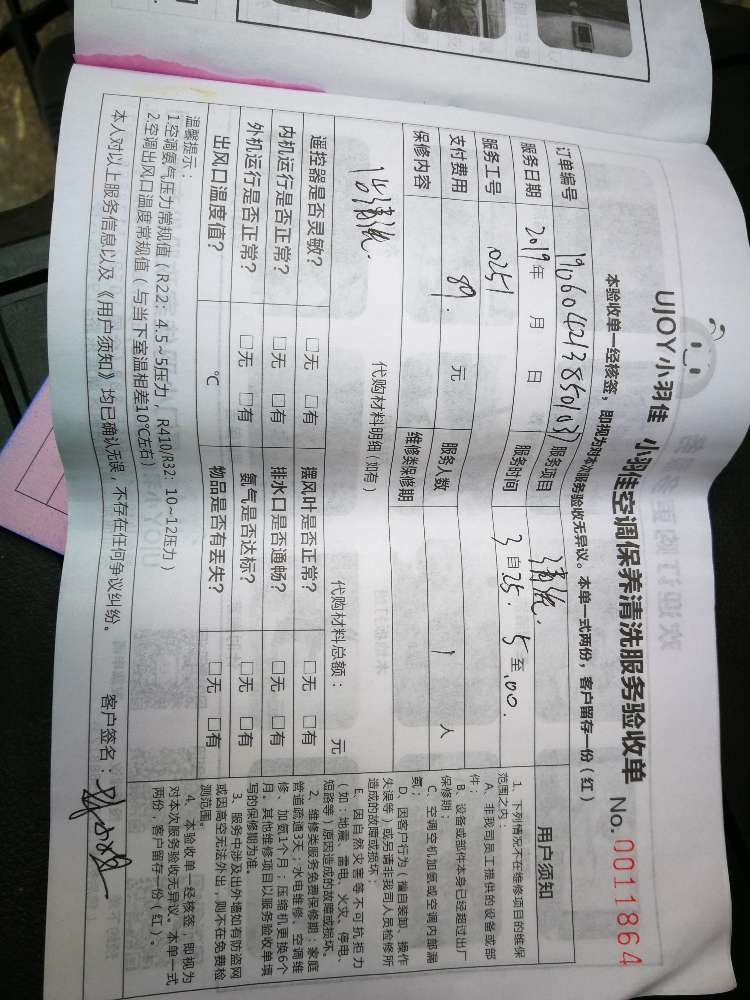 UJOY小羽佳 小羽佳空调保养清洗服务验收单 No.0011864
本验收单一经核签，即视为对本次服务验收无异议。本单一式两份，客户留存一份（红）
订单编号
服务项目 清洗
服务日期 2019年 月 日
服务时间 3自25. 5至.00.
服务工号 0251
支付费用 89. 元 服务人数 1 人
保修内容 维修类保修期
代购材料明细（如有）
代购材料总额： 元
遥控器是否灵敏？ □无 □有 摆风叶是否正常？ □无 □有
内机运行是否正常？ □无 □有 排水口是否通畅？ □无 □有
外机运行是否正常？ □无 □有 氨气是否达标？ □无 □有
出风口温度值？ ℃ 物品是否有丢失？ □无 □有
温馨提示：
1.空调氨气压力常规值（R22：4.5~5压力，R410/R32：10~12压力）
2.空调出风口温度常规值（与当下室温相差10℃左右）
本人对以上服务信息以及《用户须知》均已确认无误，不存在任何争议纠纷。 客户签名：
用户须知
1、下列情况不在维修项目的维保
范围之内：
A、非我司员工提供的设备或部
件；
B、设备或部件本身已经超过出厂
保修期；
C、空调空机加氨或空调内部漏
氨；
D、因客户行为（擅自装卸、操作
失误等）或另请非我司人员检修所
造成的故障或损坏；
E、因自然灾害等不可抗拒力
（如：地震、雷电、火灾、停电、
短路等）原因造成的故障或损坏。
2、维修类服务免费保修期：家庭
管道疏通3天；水电维修、空调维
修、加氨1个月；压缩机更换6个
月。其他维修项目以服务验收单填
写的保修期为准。
3、服务中涉及出外墙如有防盗网
或因高空无法外出，则不在免费检
测范围。
4、本验收单一经核签，即视为
对本次服务验收无异议。本单一式
两份，客户留存一份（红）。